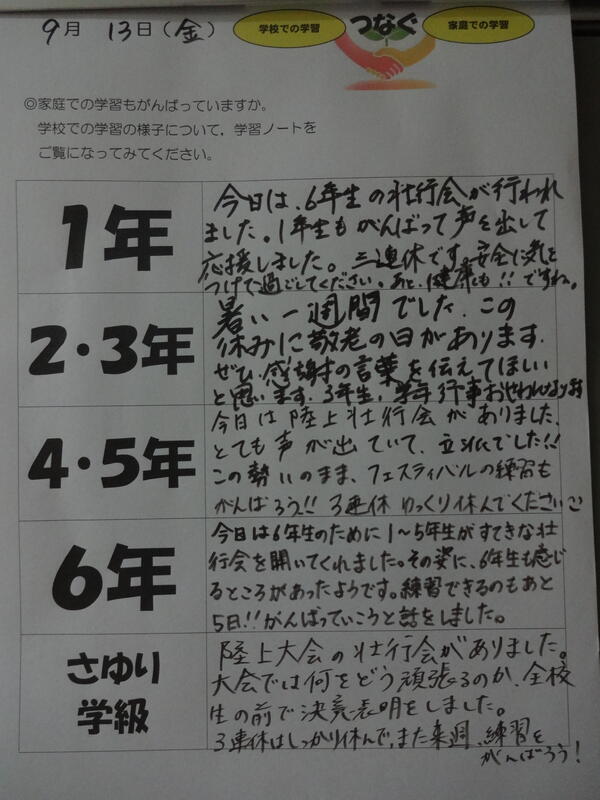 9月 13日(金)
学校での学習 つなぐ 家庭での学習
◎家庭での学習もがんばっていますか。
学校での学習の様子について,学習ノートを
ご覧になってみてください。
1年
今日は、6年生の壮行会が行われ
ました。1年生もがんばって声を出して
応援しました。三連休です。安全に気を
つけて過ごしてください。あと、健康も!!ですね。
2・3年
暑い一週間でした。この
休みに敬老の日があります。
ぜひ、感謝の言葉を伝えてほしい
と思います。3年生、学年行事おせわになります
4・5年
今日は陸上壮行会がありました。
とても声が出ていて、立派でした!!
この勢いのまま、フェスティバルの練習も
がんばろう!! 3連休ゆっくり休んでください
6年
今日は6年生のために1~5年生がすてきな壮
行会を開いてくれました。その姿に、6年生も感じ
るところがあったようです。練習できるのもあと
5日!!がんばっていこうと話をしました。
さゆり
学級
陸上大会の壮行会がありました。
大会では何をどう頑張るのか、全校
生の前で決意表明をしました。
3連休はしっかり休んで、また来週、練習を
がんばろう!